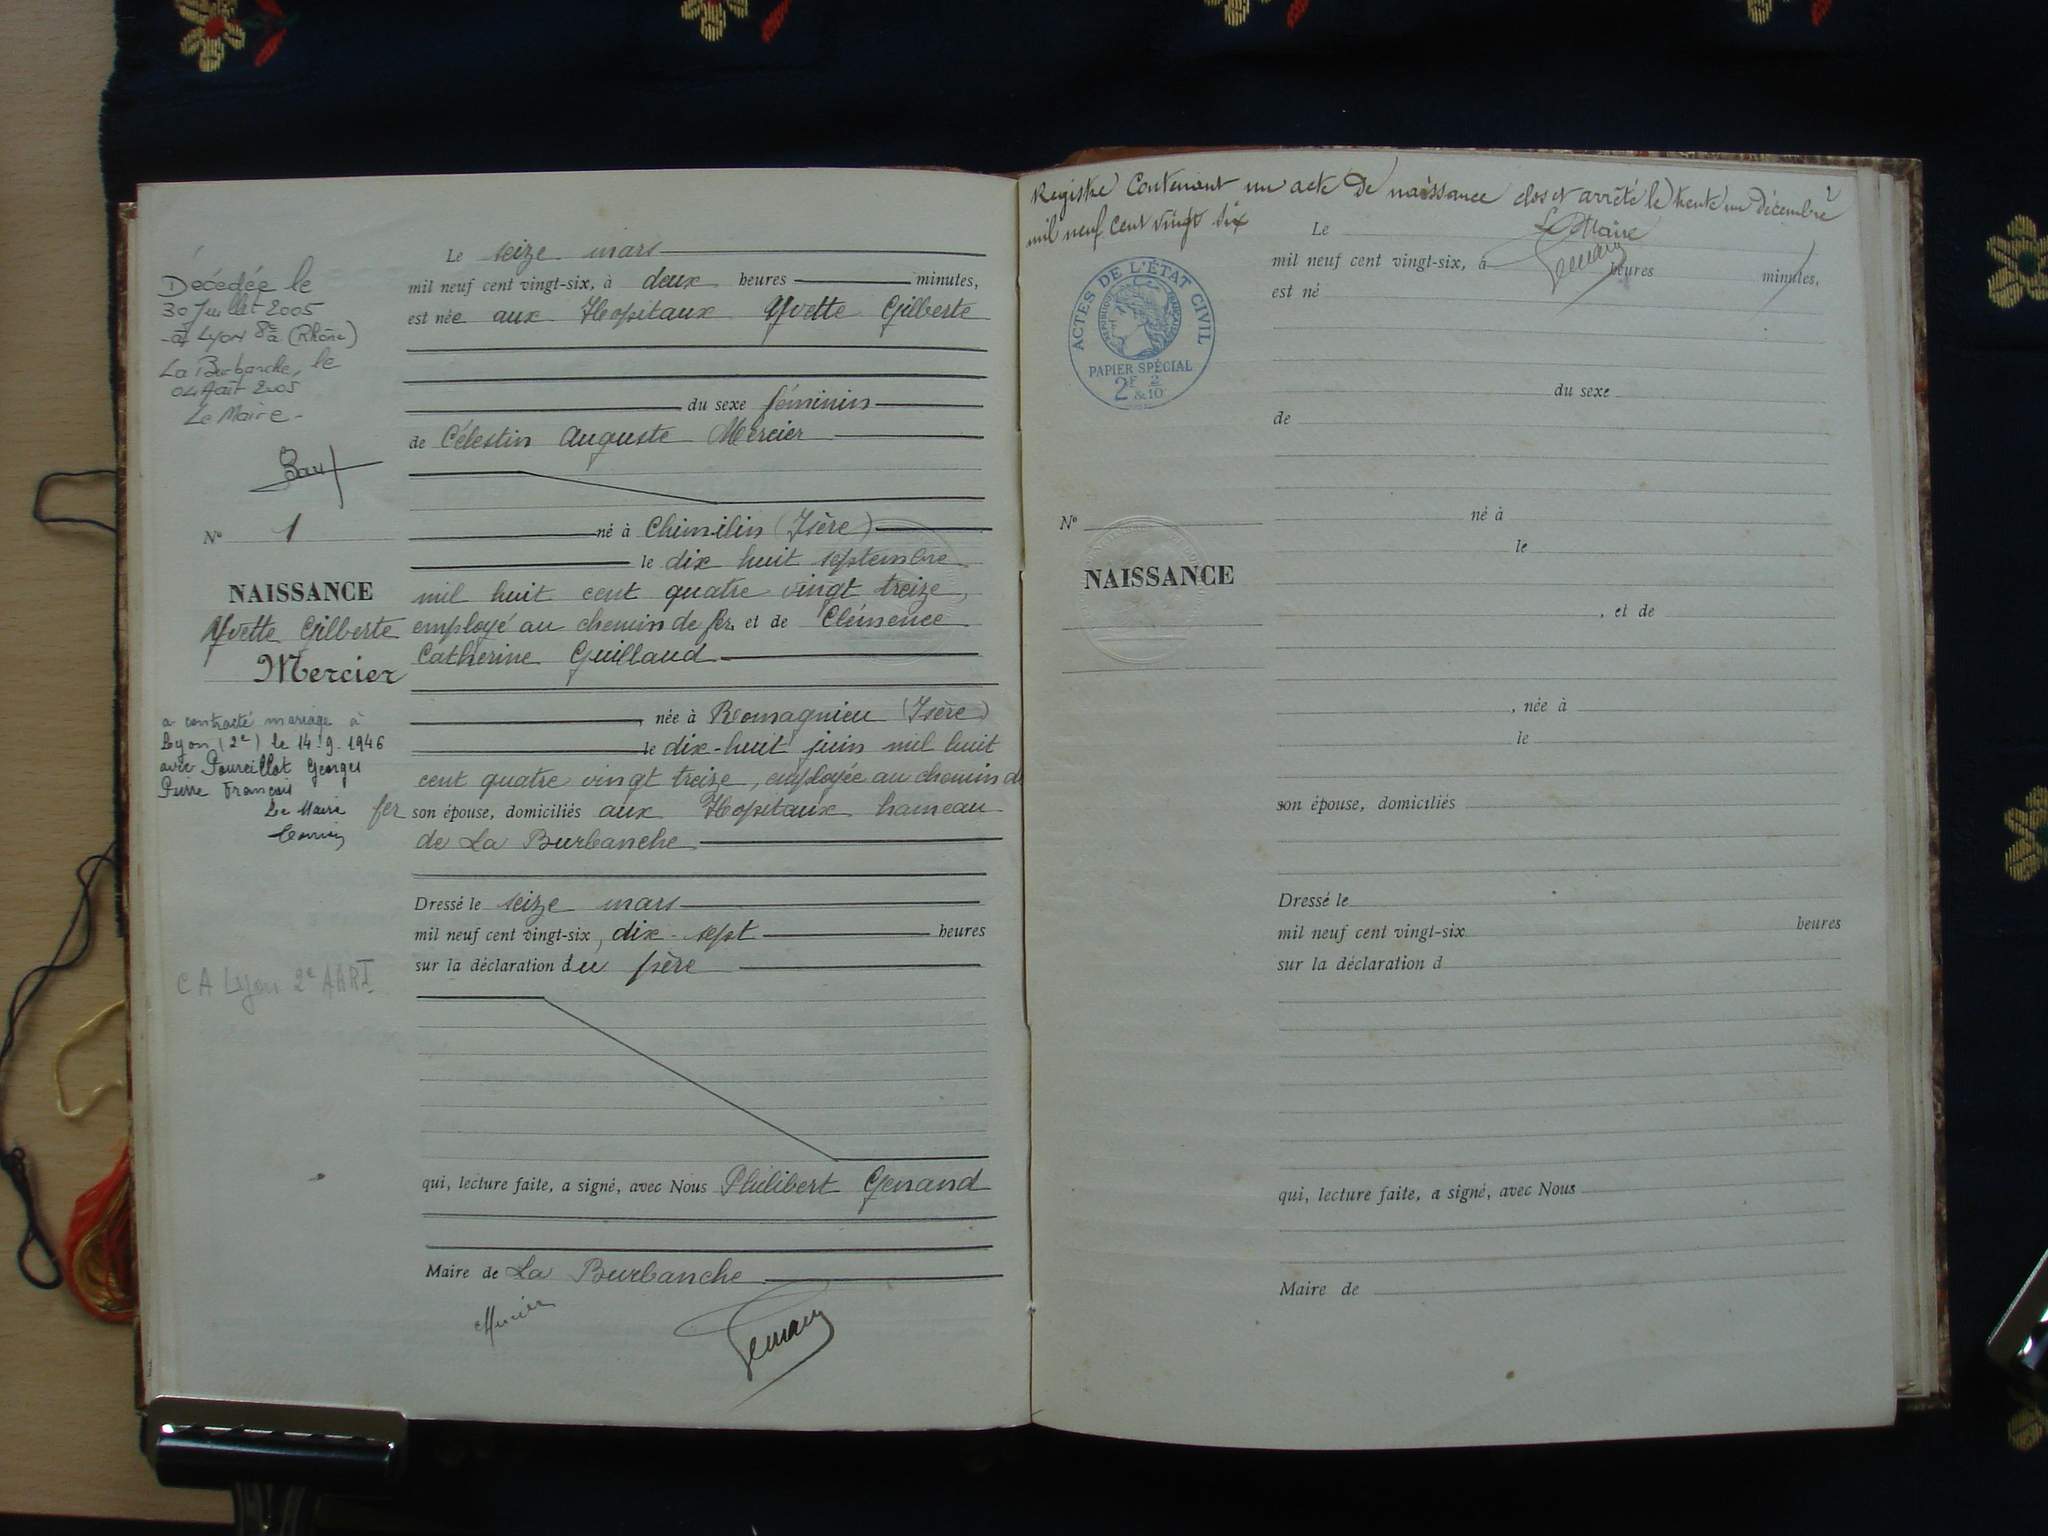 Décédée le
30 Juillet 2005
à Lyon 8e (Rhône)
La Burbanche, le
04 Août 2005
Le Maire
N° 1
NAISSANCE
Yvette Gilberte
Mercier
a contracté mariage à
Lyon (2e) le 14.9.1946
avec Poureillot Georges
Pierre François
Le Maire
C A Lyon 2e AART
Le seize mars
mil neuf cent vingt-six, à deux heures minutes,
est née aux Hopitaux Yvette Gilberte
du sexe féminin
de Célestin Auguste Mercier
né à Chimilin (Isère)
le dix huit septembre
mil huit cent quatre vingt treize,
employé au chemin de fer, et de Clémence
Catherine Guillaud
, née à Romagnieu (Isère)
le dix-huit juin mil huit
cent quatre vingt treize, employée au chemin de
fer son épouse, domiciliés aux Hopitaux hameau
de La Burbanche
Dressé le seize mars
mil neuf cent vingt-six, dix-sept heures
sur la déclaration du père
qui, lecture faite, a signé, avec Nous Philibert Genand
Maire de La Burbanche
Mercier
Genand
Registre Contenant un acte de naissance clos et arrêté le trente un décembre
mil neuf cent vingt six
Le Maire
Genand
2
ACTES DE L'ÉTAT CIVIL
RÉPUBLIQUE FRANÇAISE
PAPIER SPÉCIAL
2F 2/10
&
Le
mil neuf cent vingt-six, à heures minutes,
est né
du sexe
de
N°
né à
le
NAISSANCE
, et de
, née à
le
son épouse, domiciliés
Dressé le
mil neuf cent vingt-six heures
sur la déclaration d
qui, lecture faite, a signé, avec Nous
Maire de